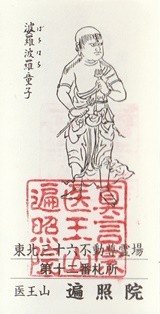 波羅波羅童子
ばらはら
真言宗
医王山
遍照院
東北三十六不動尊霊場
第十二番札所
医王山 遍照院